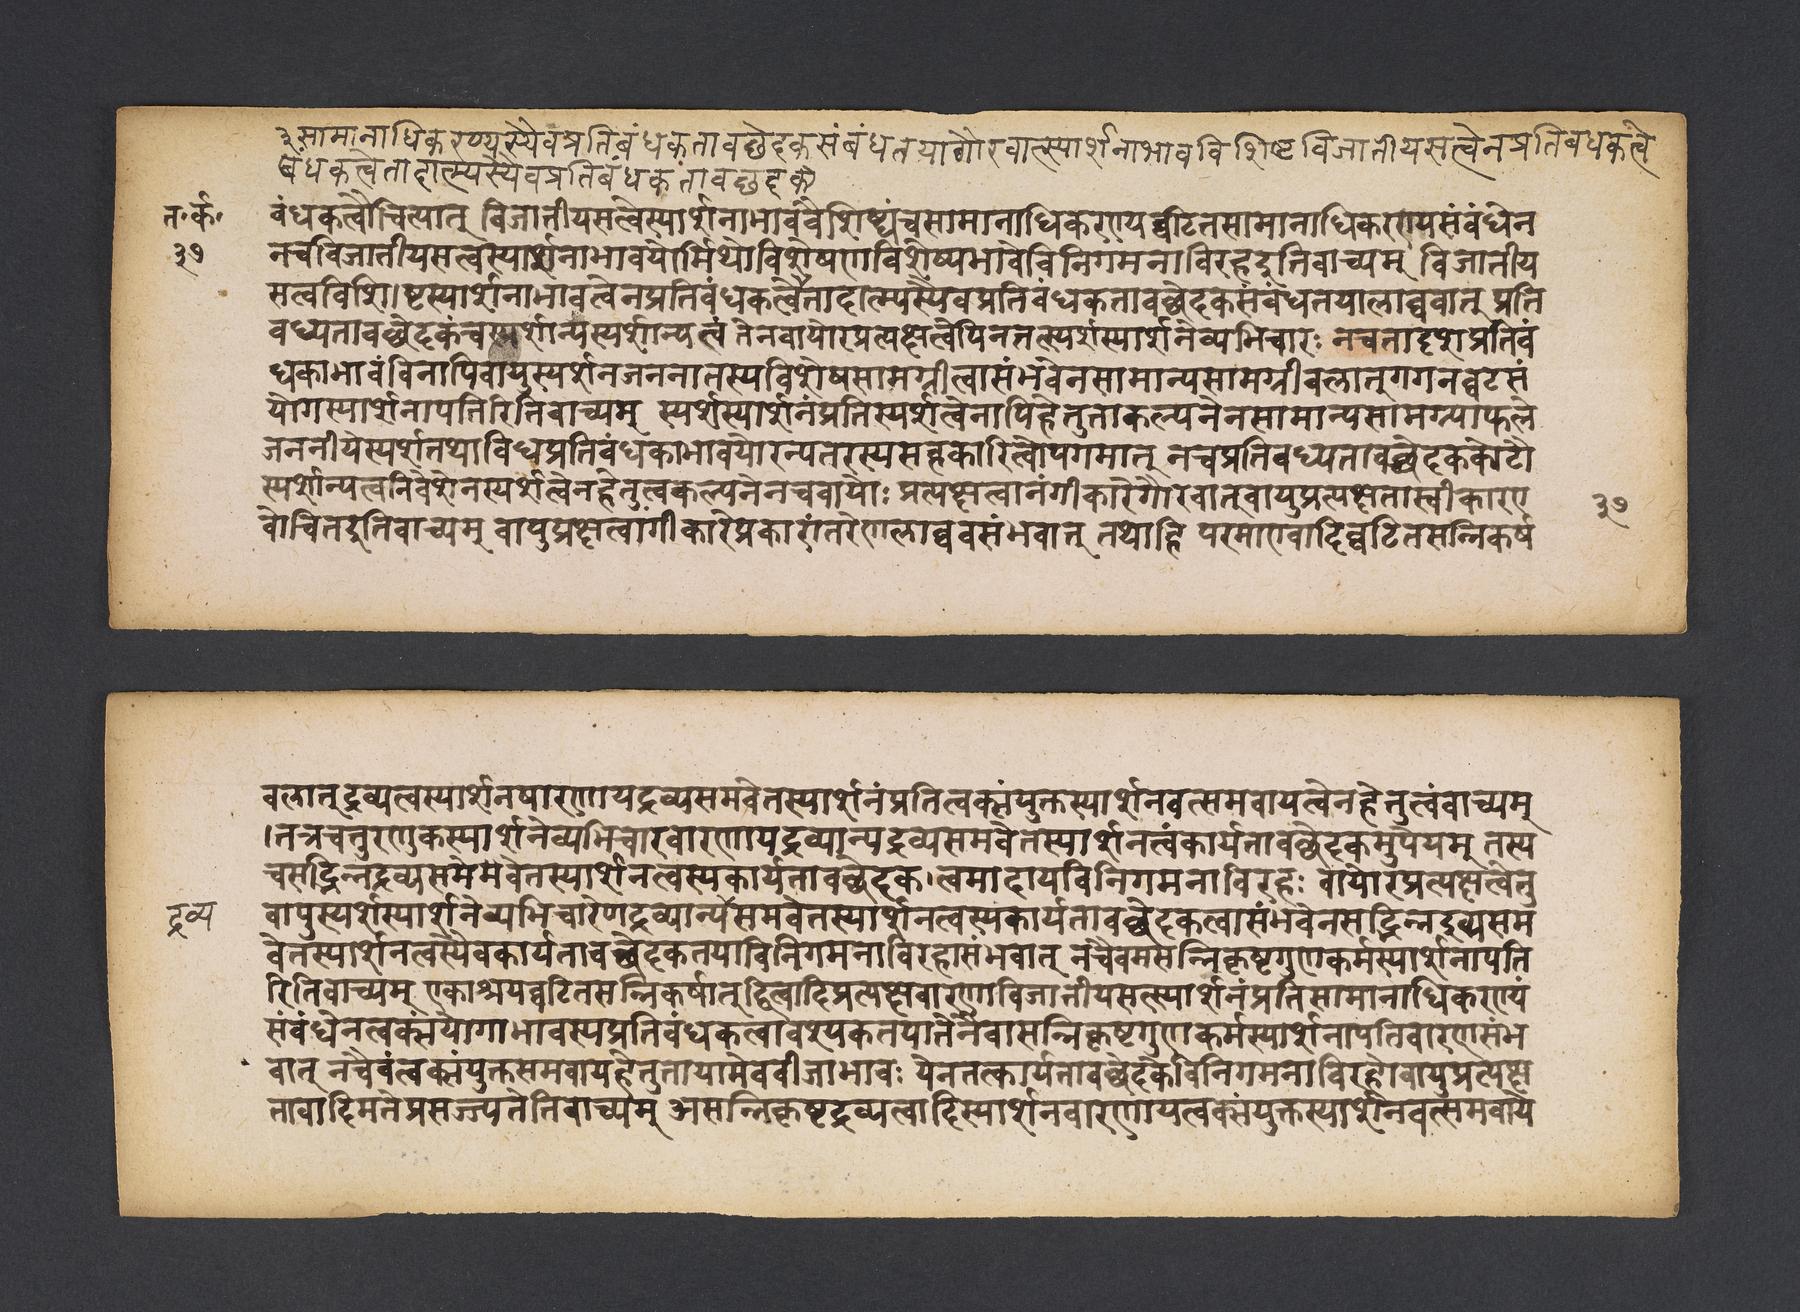 ३ सामानाधिकरण्यस्यैवप्रतिबंधकतावछेदकसंबंधतयागौरवात्स्पार्शनाभावविशिष्टविजातीयसत्वेनप्रतिबंधकत्वे
बंधकत्वेतादात्म्यस्यैवप्रतिबंधकतावछेदक
त॰र्क॰
३७
बंधकत्वौचित्यात् विजातीयसत्वेस्पार्शनाभाववैशिष्ट्यंचसामानाधिकरण्यघटितसामानाधिकरण्यसंबंधेन
नचविजातीयसत्वस्पार्शनाभावयोर्मिथोविशेषणविशेष्यभावेविनिगमनाविरहइतिवाच्यम् विजातीय
सत्वविशिष्टस्पार्शनाभावत्वेनप्रतिबंधकत्वेतादात्म्यस्यैवप्रतिबंधकतावछेदकसंबंधतयालाघवात् प्रति
बध्यतावछेदकंचस्पर्शान्यस्पर्शान्यत्वं तेनवायोरप्रत्यक्षत्वेपिनतत्स्पर्शस्पार्शनेव्यभिचारः नचतादृशप्रतिबं
धकाभावंविनापिवायुस्पर्शनजननातस्यविशेषसामग्रीत्वासंभवेनसामान्यसामग्रीबलात्गगनघटसं
योगस्पार्शनापत्तिरितिवाच्यम् स्पर्शस्पार्शनंप्रतिस्पर्शत्वेनापिहेतुताकल्पनेनसामान्यसामग्र्याफले
जननीयेस्पर्शतथाविधप्रतिबंधकाभावयोरन्यतरस्यसहकारित्वोपगमात् नचप्रतिबध्यतावछेदककोटौ
स्पर्शान्यत्वनिवेशेनस्पर्शत्वेनहेतुत्वकल्पनेनचवायोः प्रत्यक्षत्वानंगीकारेगौरवात्वायुप्रत्यक्षतास्वीकारए
वोचितइतिवाच्यम् वायुप्रक्षत्वांगीकारेप्रकारांतरेणलाघवसंभवात् तथाहि परमाण्वादिघटितसन्निकर्ष
३७
बलात्द्रव्यत्वस्पार्शनषारणायद्रव्यसमवेतस्पार्शनंप्रतित्वक्संयुक्तस्पार्शनवत्समवायत्वेनहेतुत्वंवाच्यम्
।तत्रचतुरणुकस्पार्शनेव्यभिचारवारणायद्रव्यान्यद्रव्यसमवेतस्पार्शनत्वंकार्यतावछेदकमुपेयम् तस्य
चसद्भिन्नद्रव्यसमेमवेतस्पार्शनत्वस्यकार्यतावछेदक।त्वमादायविनिगमनाविरहः वायोरप्रत्यक्षत्वेतु
द्रव्य
वायुस्पर्शस्पार्शनेव्यभिचारेणद्रव्यान्यसमवेतस्पार्शनत्वस्यकार्यतावछेदकत्वासंभवेनसद्भिन्नद्रव्यसम
वेतस्पार्शनत्वस्यैवकार्यतावछेदकतयाविनिगमनाविरहासंभवात् नचैवमसन्निकृष्टगुणकर्मस्पार्शनापत्ति
रितिवाच्यम् एकाश्रयघटितसन्निकर्षात्द्वित्वादिप्रत्यक्षवारणाविजातीयसत्स्पार्शनंप्रतिसामानाधिकरण्यं
संबंधेनत्वक्संयोगाभावस्यप्रतिबंधकत्वावश्यकतयातेनैवासन्निकृष्टगुणकर्मस्पार्शनापत्तिवारणसंभ
वात् नचैवंत्वक्संयुक्तसमवायहेतुतायामेवबीजाभावः येनतत्कार्यतावछेदकेविनिगमनाविरहोवायुप्रत्यक्ष
तावादिमतेप्रसज्ज्यतेतिवाच्यम् असन्निकृष्टद्रव्यत्वादिस्पार्शनवारणायत्वक्संयुक्तस्पार्शनवत्समवाय